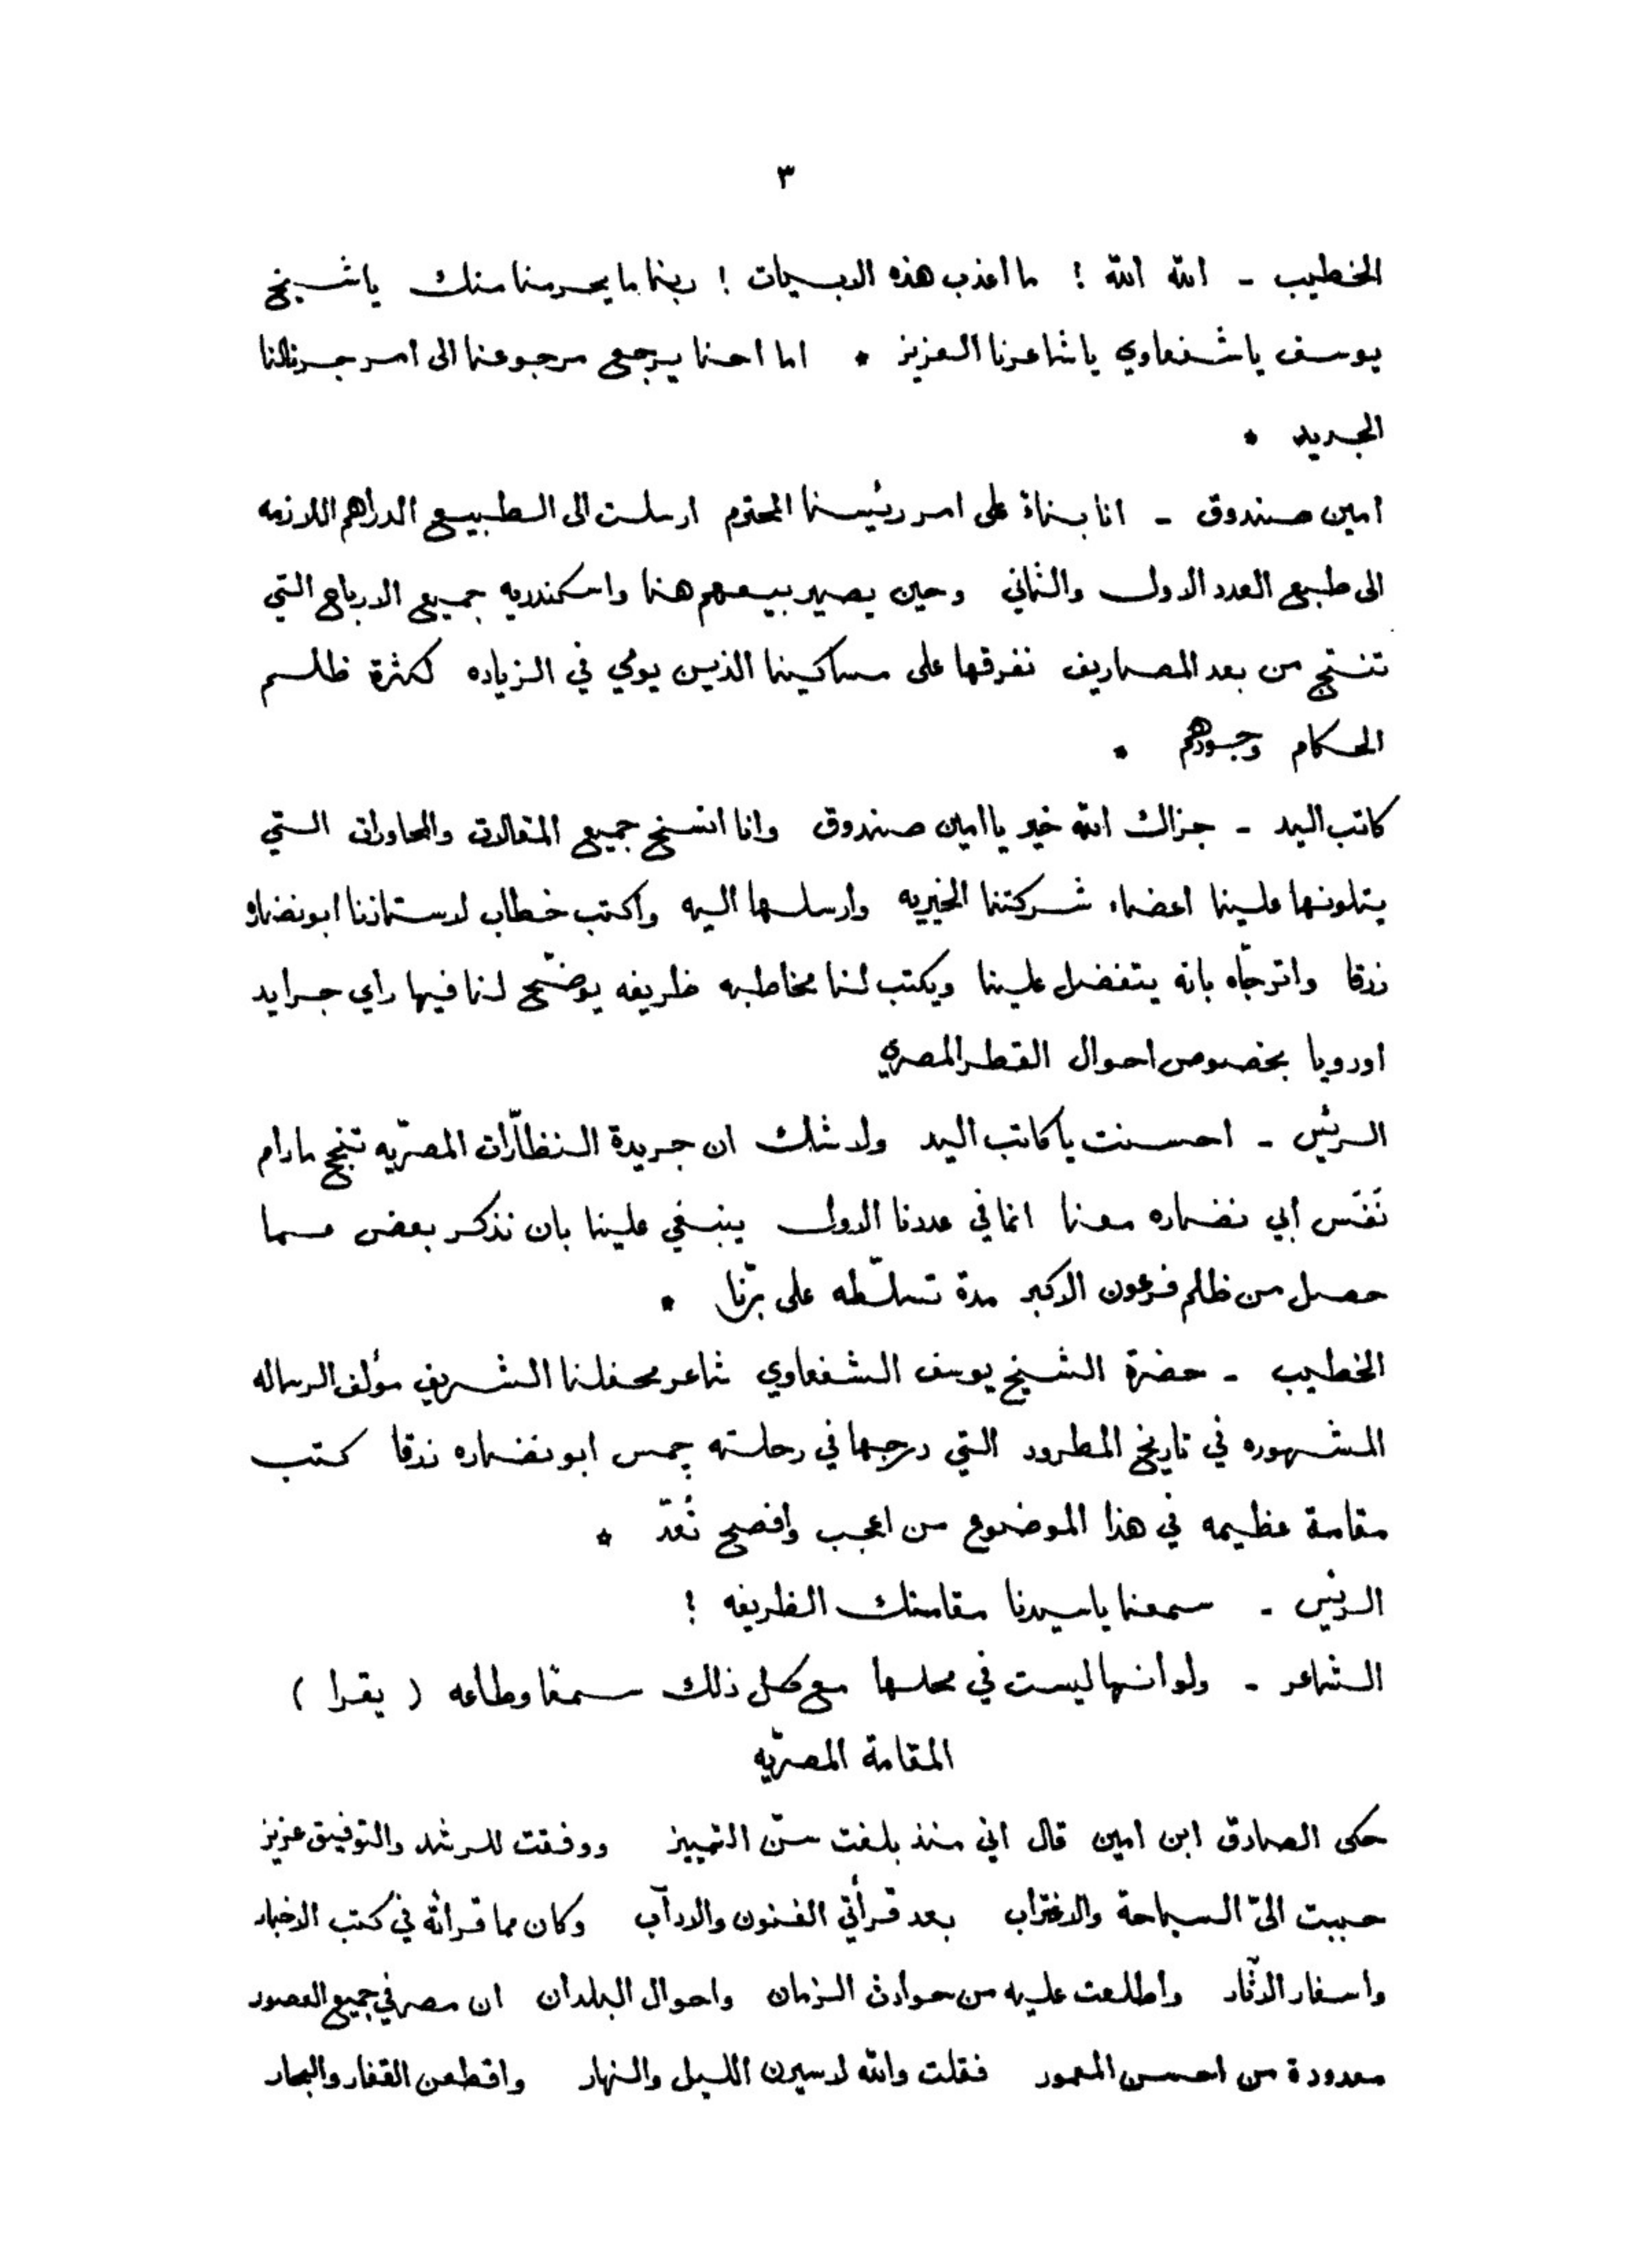 ٣
الخطيب - الله الله ! ما اعذب هذه الابيات ! ربنا ما يحرمنا منك ياشيخ
يوسف ياشفعاوي ياشاعرنا العزيز * اما احنا يرجع مرجوعنا الى امر جرنالنا
الجديد *
امين صندوق - انا بناءً على امر رئيسنا المحترم ارسلت الى الطبيع الدراهم اللازمه
الى طبع العدد الاول والثاني وحين يصير بيعهم هنا واسكندريه جميع الارباح التي
تنتج من بعد المصاريف نفرقها على مساكيننا الذين يومي في الزياده لكثرة ظلم
الحكام وجورهم *
كاتب اليد - جزاك الله خير ياامين صندوق وانا انسخ جميع المقالات والمحاورات التي
يتلونها علينا اعضاء شركتنا الخيريه وارسلها اليه واكتب خطاب لاستاذنا ابونضاره
زرقا واترجّاه بانه يتفضل علينا ويكتب لنا مخاطبه ظريفه يوضّح لنا فيها راي جرايد
اوروپا بخصوص احوال القطر المصري
الريّس - احسنت ياكاتب اليد ولا شك ان جريدة النظّارات المصريّه تنجح مادام
نَفَس أبي نضاره معنا انما في عددنا الاول ينبغي علينا بان نذكر بعض عما
حصل من ظلم فرعون الاكبر مدة تسلّطه على برّنا *
الخطيب - حضرة الشيخ يوسف الشفعاوي شاعر محفلنا الشريف مؤلف الرساله
المشهوره في تاريخ المطرود التي درجها في رحلته چمس ابونضاره زرقا كتب
مقامة عظيمه في هذا الموضوع من اعجب وافصح تُعَدّ *
الريّس - سمعنا ياسيدنا مقامتك الظريفه !
الشاعر - ولو انها ليست في محلها مع كل ذلك سمعًا وطاعه ( يقرا )
المقامة المصريّه
حكى الصادق ابن امين قال اني منذ بلغت سنّ التمييز ووفقت للرشد والتوفيق عزيز
حببت اليّ السياحة والاغتراب بعد قرأتي الفنون والاداب وكان مما قرأته في كتب الاخبار
واسفار الآثار واطلعت عليه من حوادث الزمان واحوال البلدان ان مصر في جميع العصور
معدودة من احسن المعمور فقلت والله لاسيرن الليل والنهار واقطعن القفار والبحار